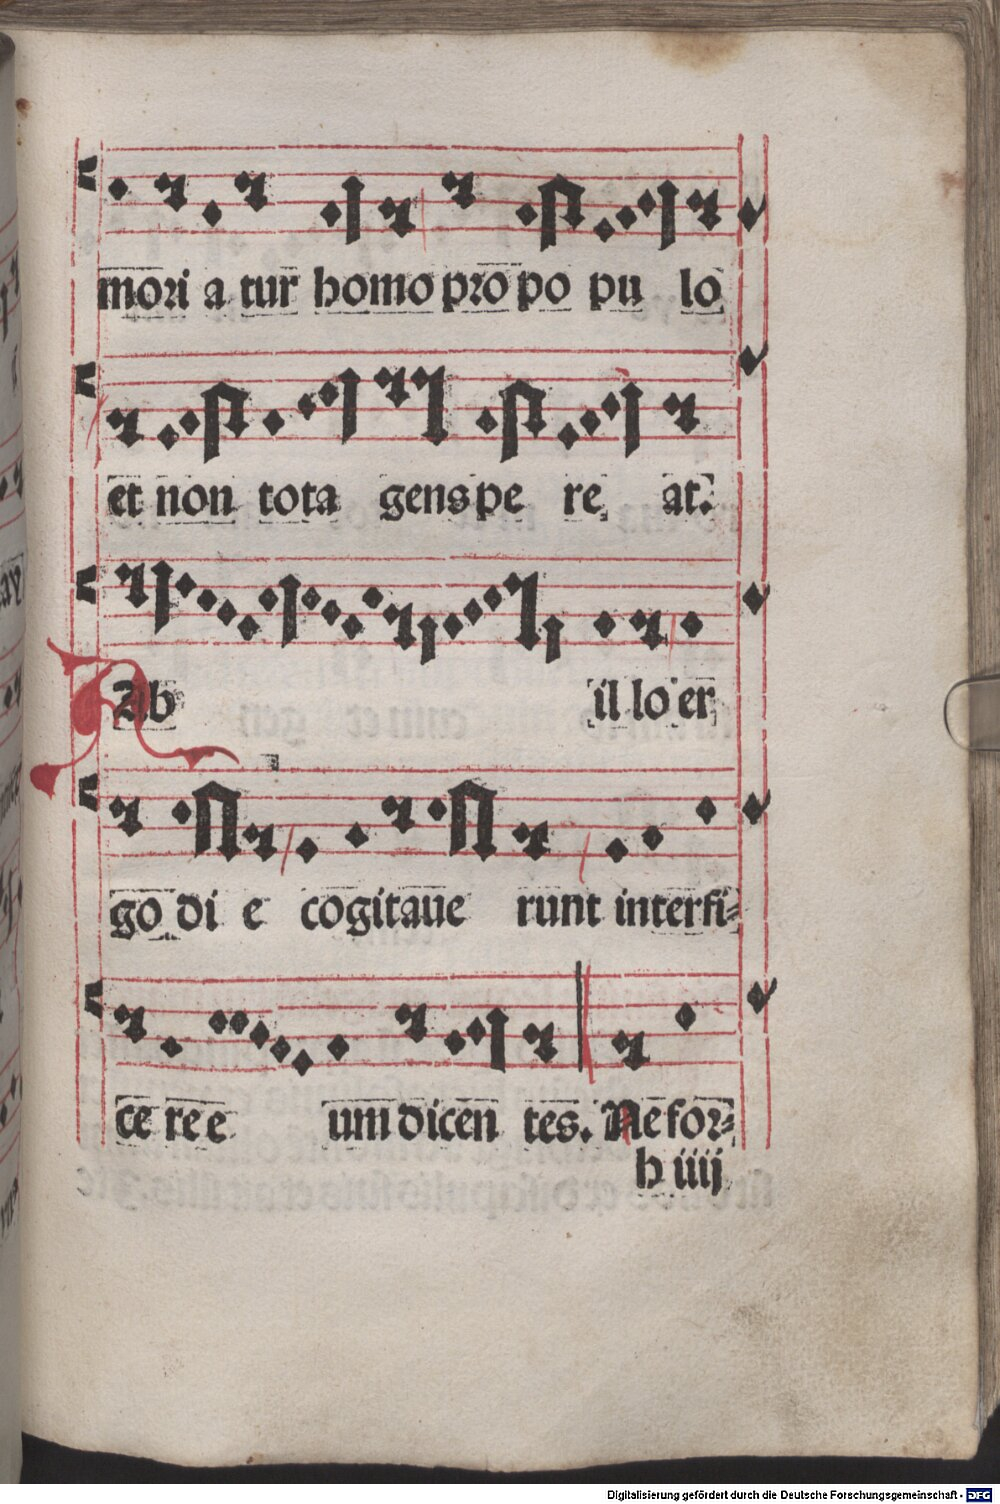 mori a tur homo pro po pu lo
et non tota gens pe re at.
Ab il lo er
go di e cogitaue runt interfi⸗
ce re e um dicen tes. Ne for⸗
h iiij
Digitalisierung gefördert durch die Deutsche Forschungsgemeinschaft - DFG